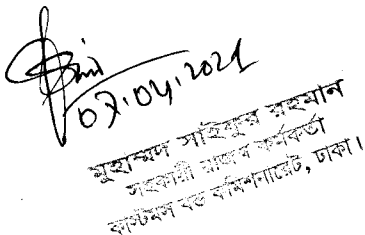 07.04.2021
মুহাম্মদ সাইফুর রহমান
সহকারী রাজস্ব কর্মকর্তা
কাস্টমস বন্ড কমিশনারেট, ঢাকা।